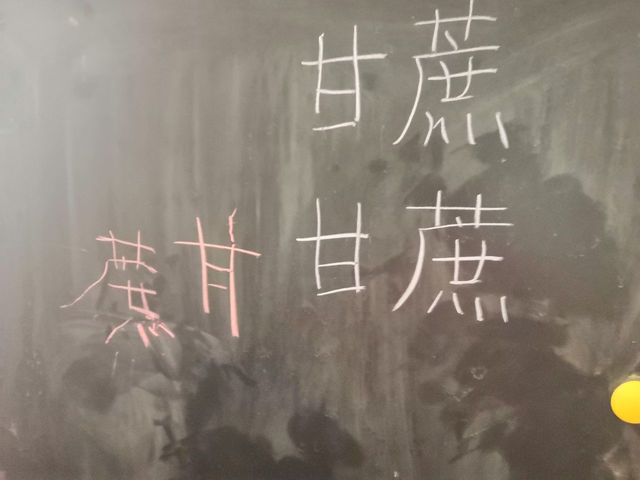 甘蔗
甘蔗
蔗甘